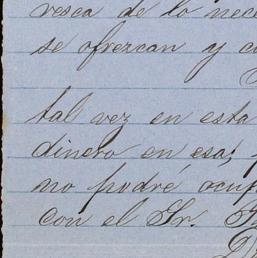 resca de lo nece
se ofrezcan y c
tal vez en esta
dinero en esa;
no podré ocup
con el Sr.